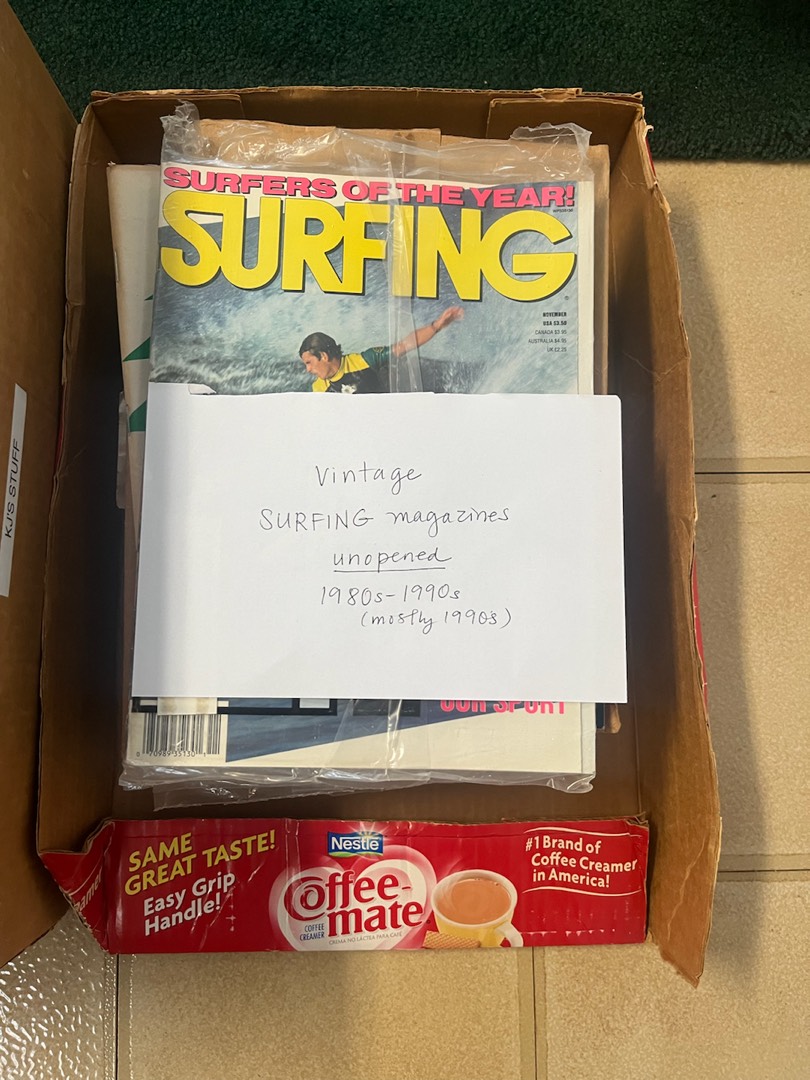 SURFERS OF THE YEAR!
SURFING
NOVEMBER
USA $3.50
CANADA $3.95
AUSTRALIA $4.50
UK £2.25
Vintage
SURFING magazines
unopened
1980s-1990s
(mostly 1990's)
OUR SPORT
0 70989 35130 1
KJ'S STUFF
SAME
GREAT TASTE!
Easy Grip
Handle!
Nestlé
Coffee-
mate
COFFEE
CREAMER
CREMA NO LÁCTEA PARA CAFÉ
#1 Brand of
Coffee Creamer
in America!